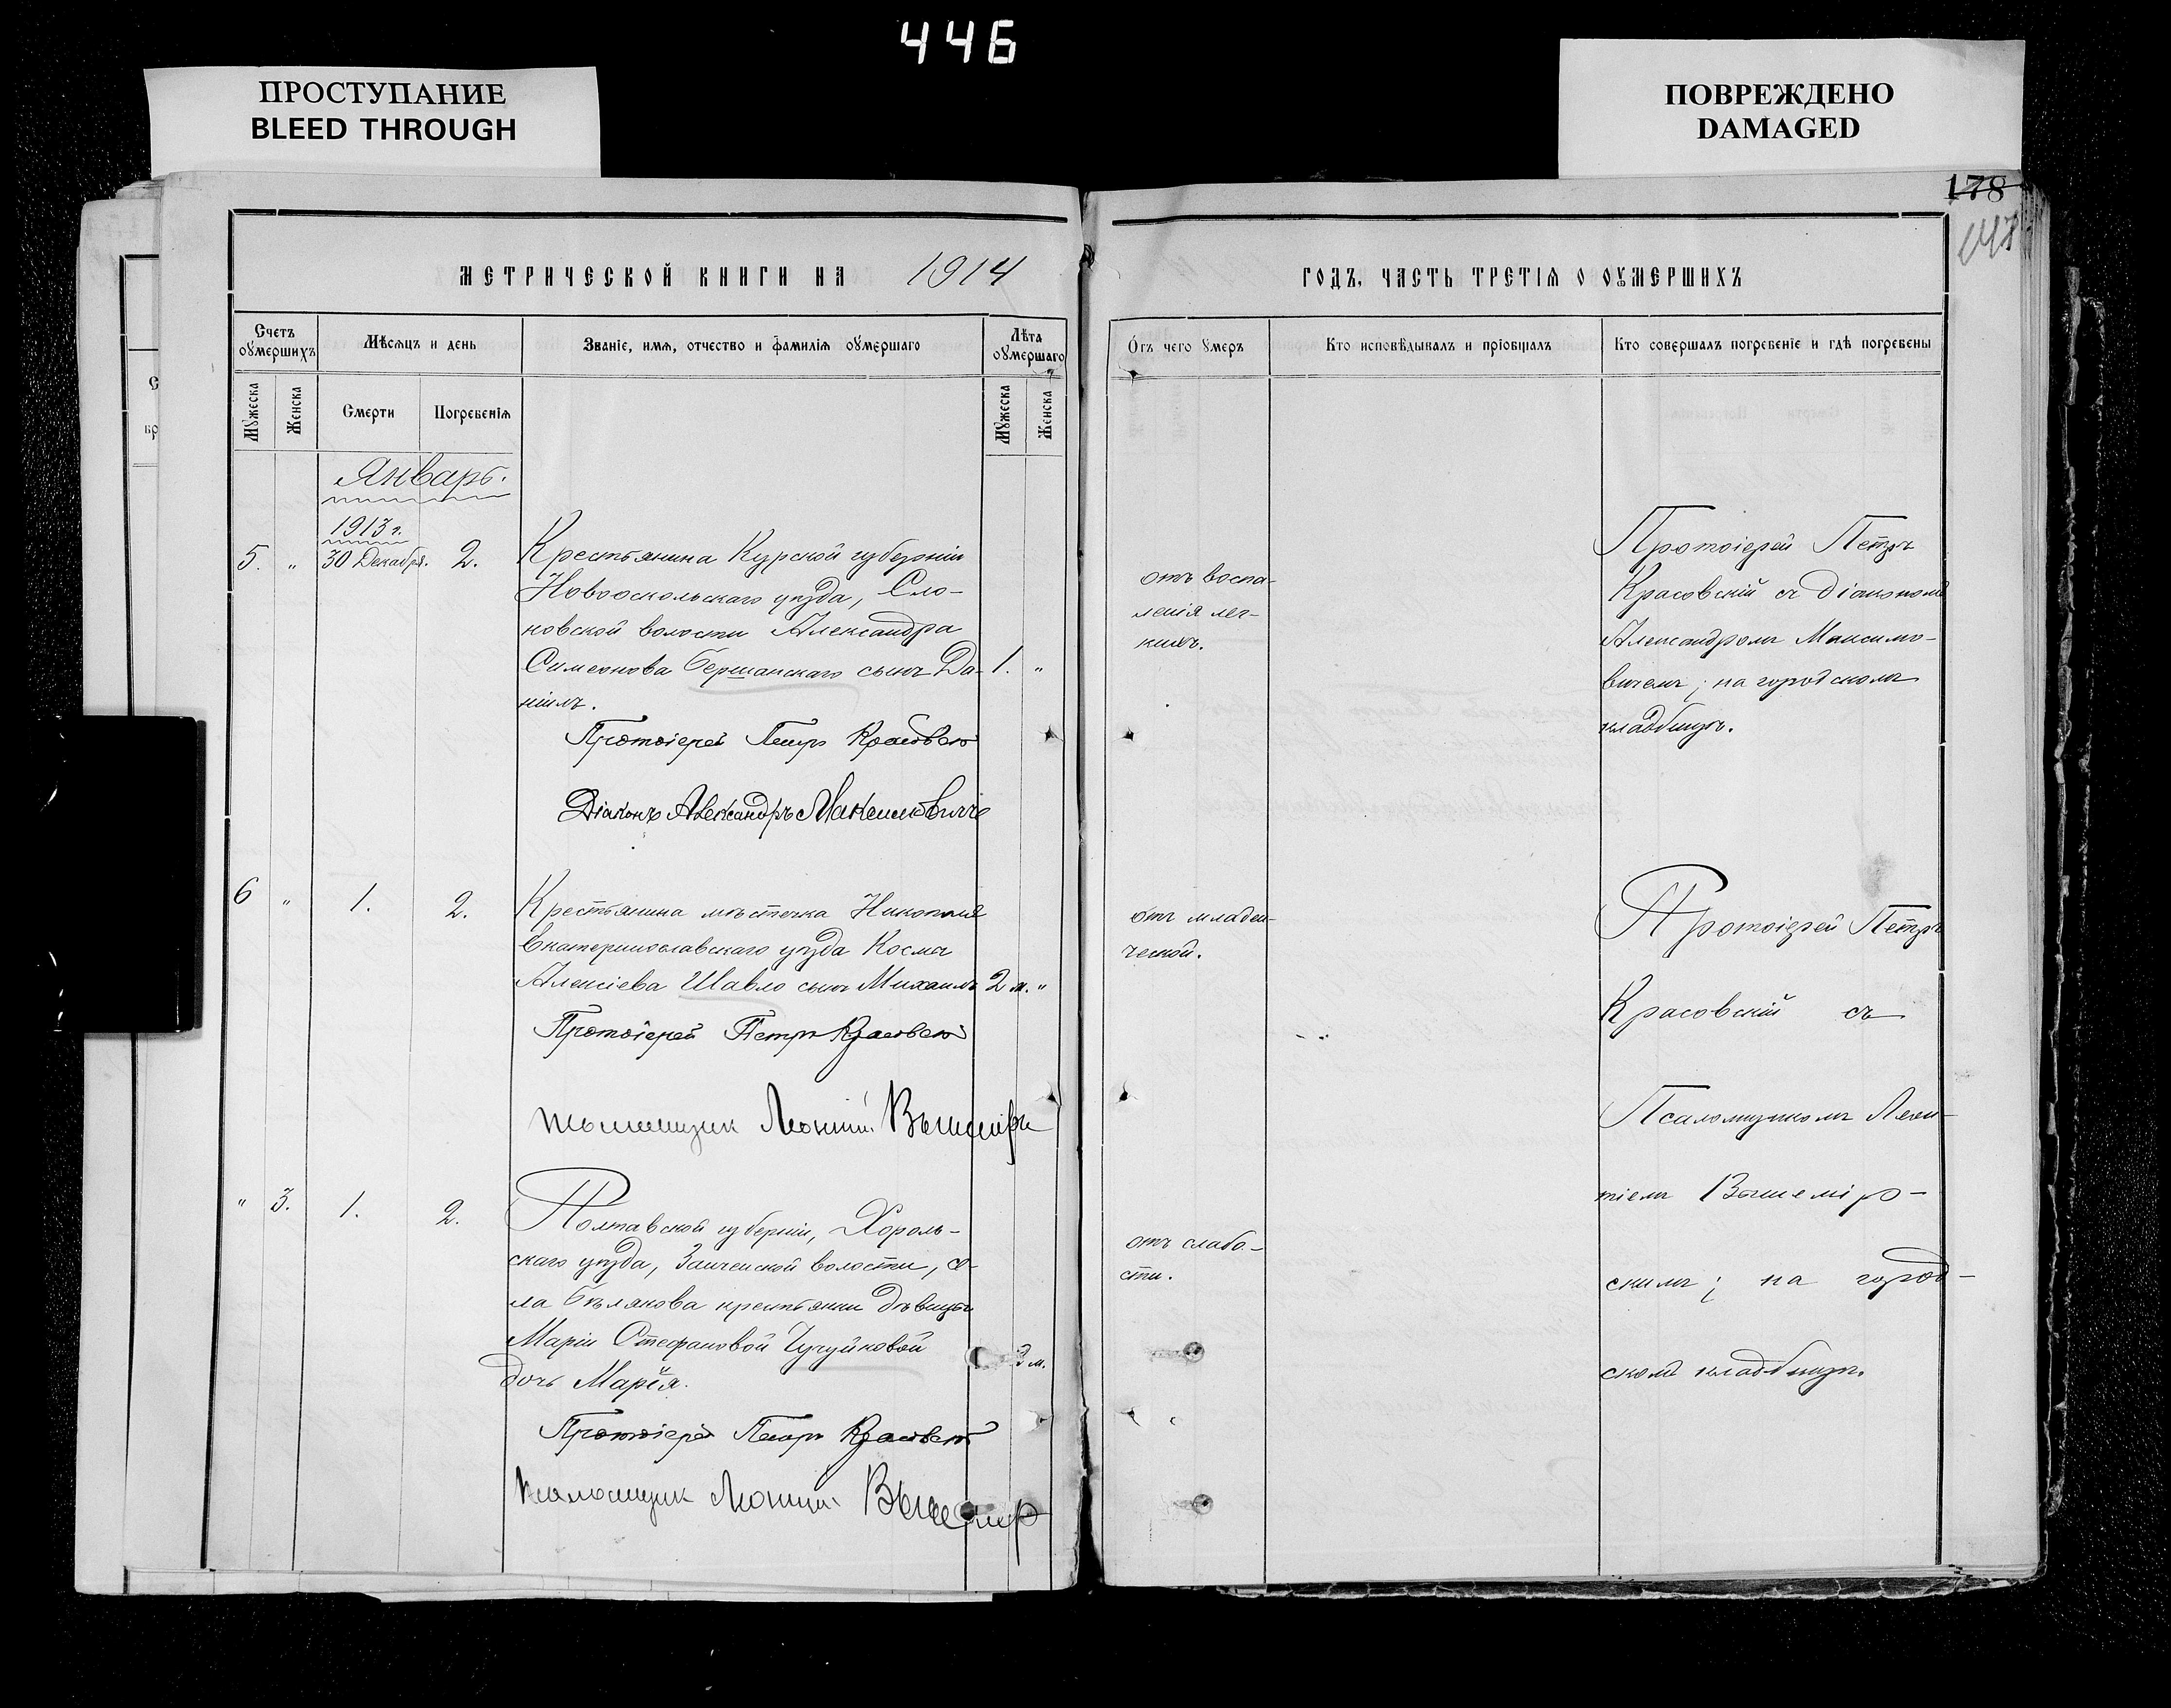 446
ПРОСТУПАНИЕ
BLEED THROUGH
ПОВРЕЖДЕНО
DAMAGED
178
МЕТРИЧЕСКОЙ КНИГИ НА 1914
ГОДЪ, ЧАСТЬ ТРЕТІЯ О ОУМЕРШИХЪ
Счетъ оумершихъ
Мѣсяцъ и день
Званіе, имя, отчество и фамилія оумершаго
Лѣта оумершаго
Отъ чего умеръ
Кто исповѣдывалъ и пріобщалъ
Кто совершалъ погребеніе и гдѣ погребены
Мужеска
Женска
Смерти
Погребенія
Мужеска
Женска
Январь.
1913 г.
5. " 30 Декабря. 2. Крестьянина Курской губерніи
Новооскольскаго уѣзда, Сло-
новской волости Александра
Симеонова Бершанскаго сынъ Да- 1. "
ніилъ.
Протоіерей Петръ Красовскій
Діаконъ Александръ Максимовичъ
отъ воспа-
ленія лег-
кихъ.
Протоіерей Петръ
Красовскій съ діакономъ
Александромъ Максимо-
вичемъ; на городскомъ
кладбищѣ.
6 " 1. 2. Крестьянина мѣстечка Никополя
Екатеринославскаго уѣзда Космы
Алексіева Шавло сынъ Михаилъ 2 м. "
Протоіерей Петръ Красовскій
Псаломщикъ Леонтій Вышемір
отъ младен-
ческой.
Протоіерей Петръ
Красовскій съ
Псаломщикомъ Леон-
тіемъ Вышемір-
скимъ; на город-
скомъ кладбищѣ.
" 3. 1. 2. Полтавской губерніи, Хороль-
скаго уѣзда, Заиченской волости, се-
ла Бѣлякова крестьянки дѣвицы
Маріи Стефановой Чучуйковой
дочь Марія.
м.
Протоіерей Петръ Красовскій
Псаломщикъ Леонтій Вышемір
отъ слабо-
сти.